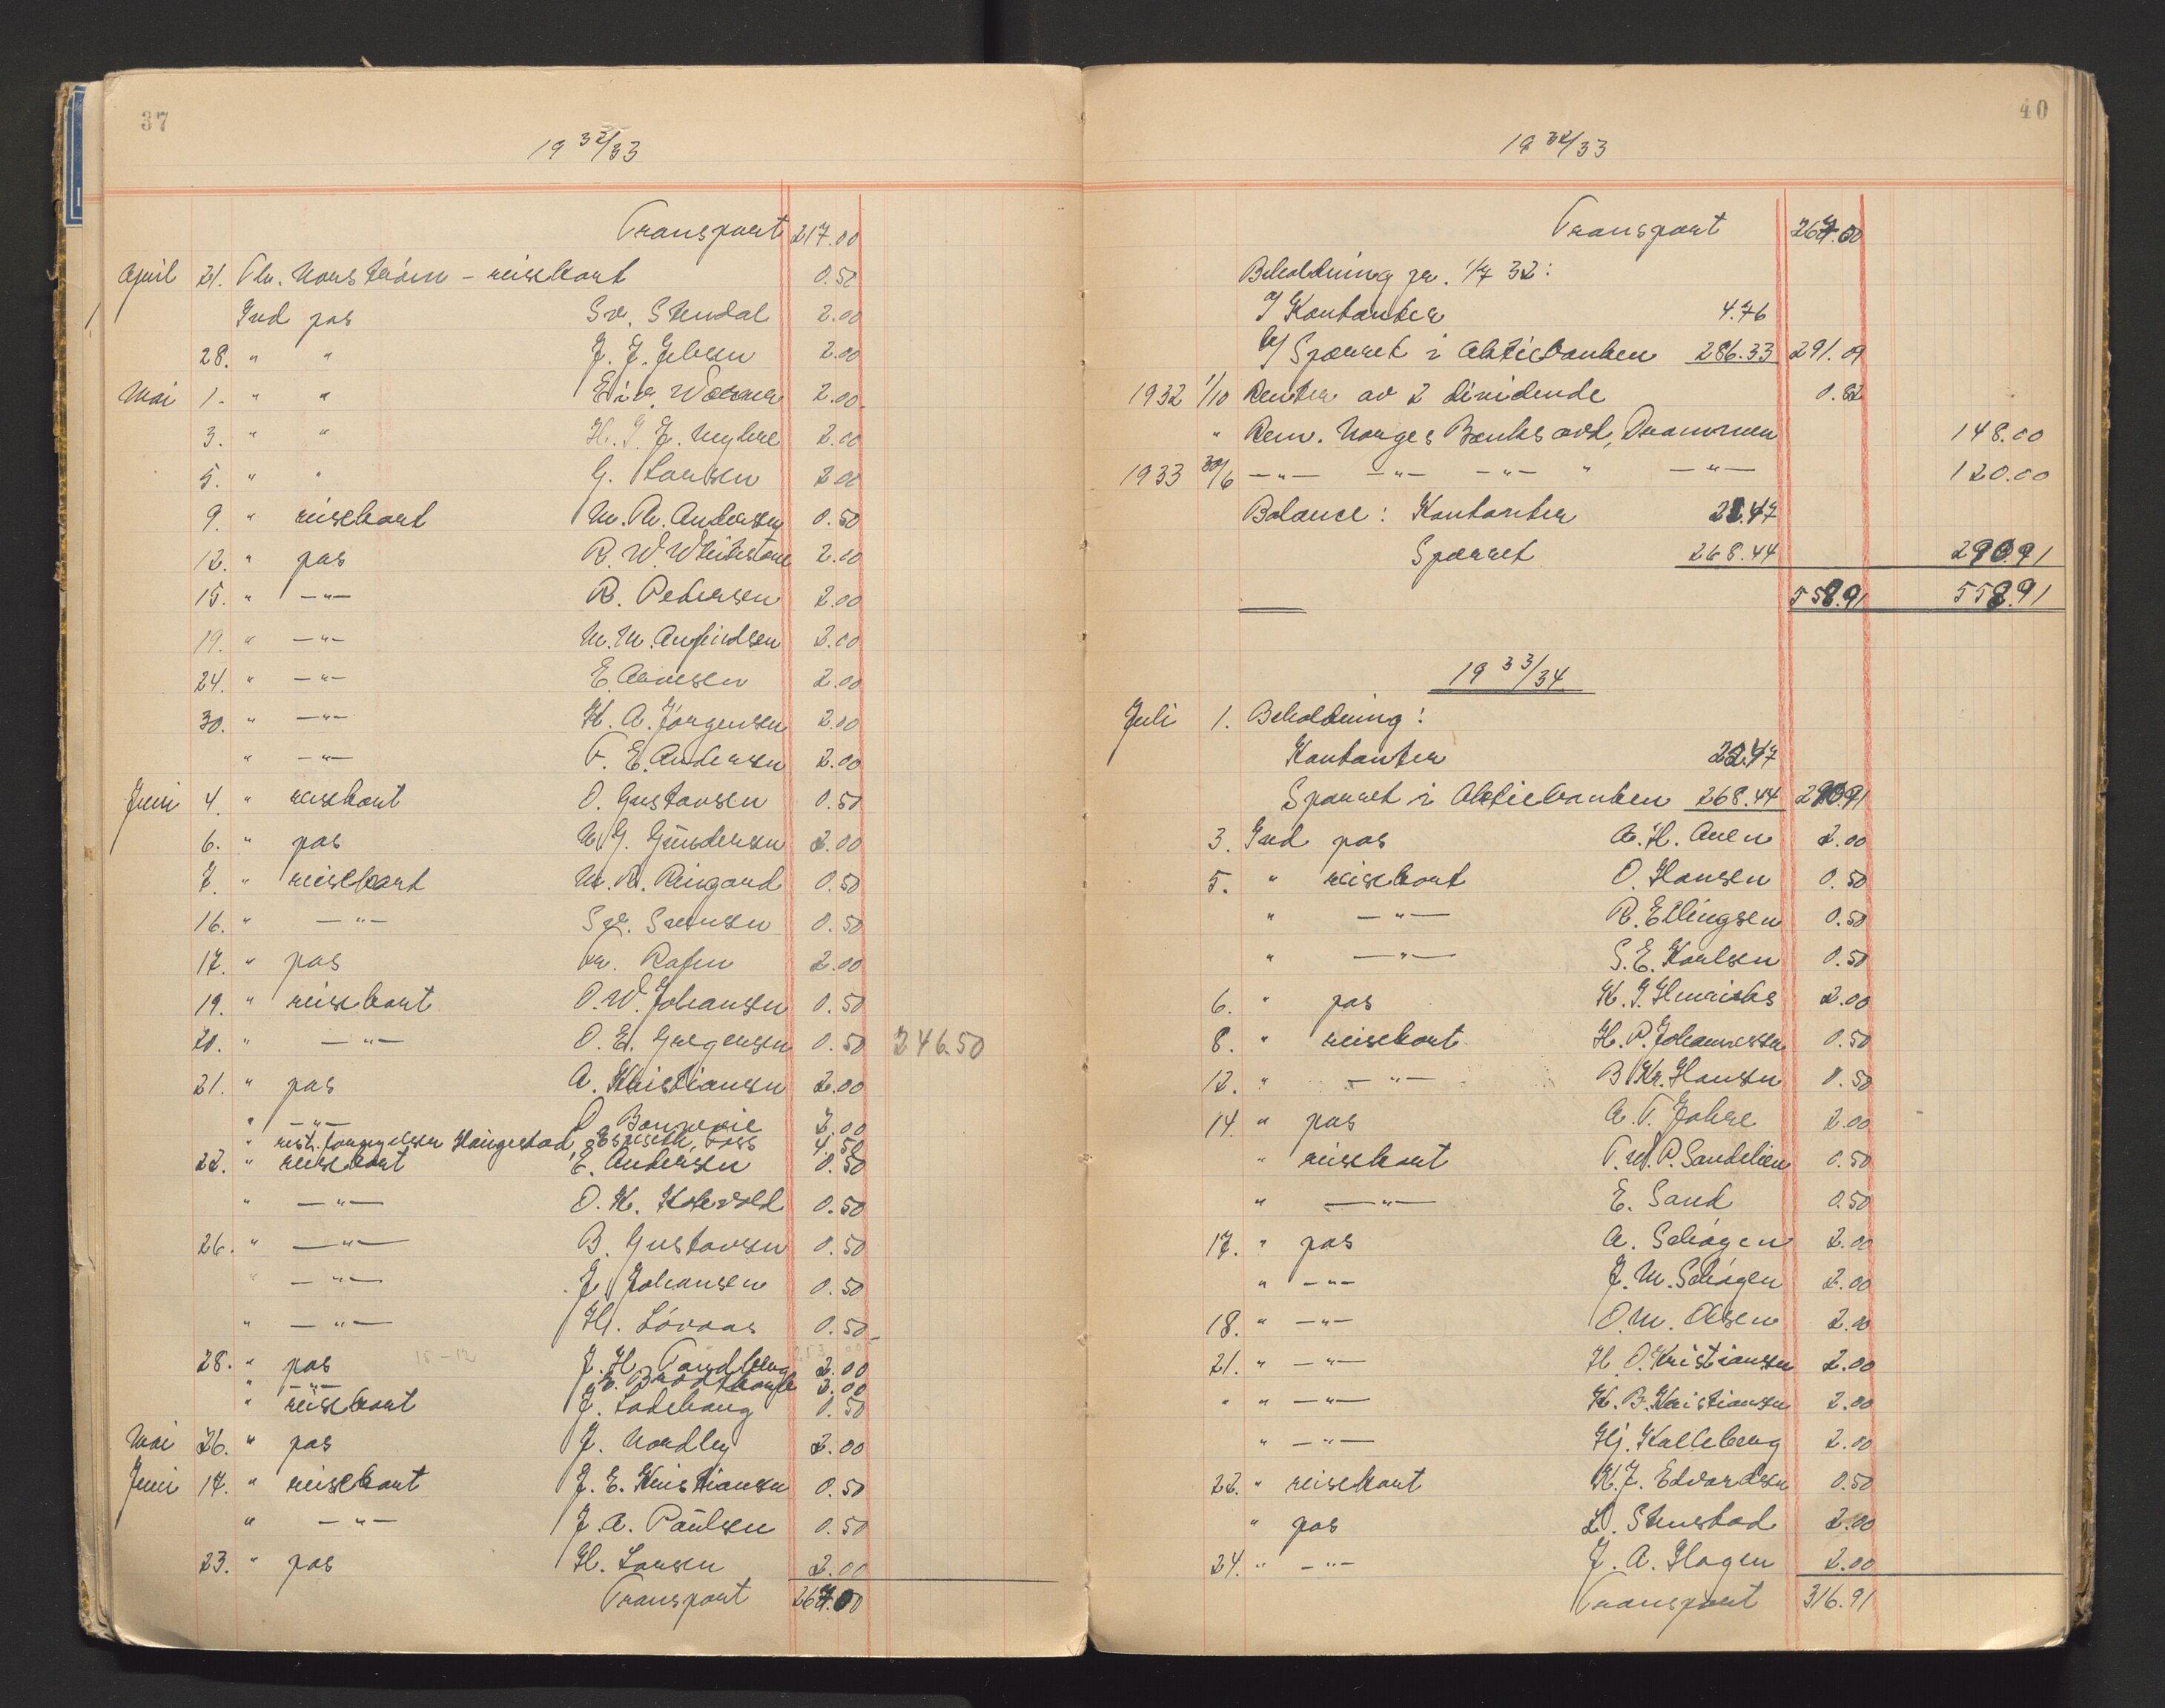 37
19 32/33
Transport 217.00
April 21. Th. Norstrøm - reisekort 0.50
Ind pas Sv. Stendal 2.00
28. " " J. J. Jebsen 2.00
Mai 1. " " 2.00
3. " " H. J. Myhre 2.00
5. " " G. Larsen 2.00
9. " reisekort M. Th. Andersen 0.50
12. " pas R. W. Whitstone 2.00
15. " —"— R. Pedersen 2.00
19. " —"— M. M. Anfindsen 2.00
24. " —"— E. Arnesen 2.00
30. " —"— K. A. Jørgensen 2.00
" —"— F. E. Andersen 2.00
Juni 4. " reisekort O. Gustavsen 0.50
6. " pas G. Gundersen 2.00
7. " reisekort M. R. Ringard 0.50
16. " —"— Sv. Svensen 0.50
17. " pas Kr. Rafen 2.00
19. " reisekort O. W. Johansen 0.50
20. " —"— O. E. Gregersen 0.50 246.50
21. " pas A. Kristiansen 2.00
" —"— Bonnevie 2.00
" Haugestad, Espeseth, Foss 4.50
22. " reisekort E. Andersen 0.50
" —"— O. K. Kolsvold 0.50
26. " —"— B. Gustavsen 0.50
" —"— J. Johansen 0.50
" —"— Hj. Løvaas 0.50
28. " pas J. H. Tandberg 2.00
" —"— 2.00
" reisekort J. Ladehaug 0.50
Mai 26. " pas J. Nordby 2.00
Juni 14. " reisekort J. E. Kristiansen 0.50
" —"— J. A. Paulsen 0.50
23. " pas H. Larsen 2.00
Transport 267.00
40
19 32/33
Transport 267.00
Beholdning pr. 1/7 32:
a/ Kontanter 4.76
b/ Sperret i Aktiebanken 286.33 291.09
1932 1/10 Renter av 2 dividende 0.82
" Rem. Norges Banks avd, Drammen 148.00
1933 30/6 —"— —"— —"— " —"— 120.00
Balance: Kontanter 22.47
Sperret 268.44 290.91
558.91 558.91
19 33/34
Juli 1. Beholdning:
Kontanter 22.47
Sperret i Aktiebanken 268.44 290.91
3. Ind pas A. H. Auen 2.00
5. " reisekort O. Hansen 0.50
" —"— R. Ellingsen 0.50
" —"— S. E. Karlsen 0.50
6. " pas K. J. Henrichs 2.00
8. " reisekort H. P. Johannessen 0.50
12. " —"— B. Kr. Hansen 0.50
14. " pas A. F. Jahre 2.00
" reisekort Sandelien 0.50
" —"— E. Sand 0.50
17. " pas A. Schøgen 2.00
" —"— J. M. Schøgen 2.00
18. " —"— O. M. Olsen 2.00
21. " —"— H. O. Kristiansen 2.00
" " —"— K. B. Kristiansen 2.00
" —"— Hj. Kalleberg 2.00
22. " reisekort K. J. Edvardsen 0.50
" pas L. Stenstad 2.00
24. " —"— J. A. Hagen 2.00
Transport 316.91